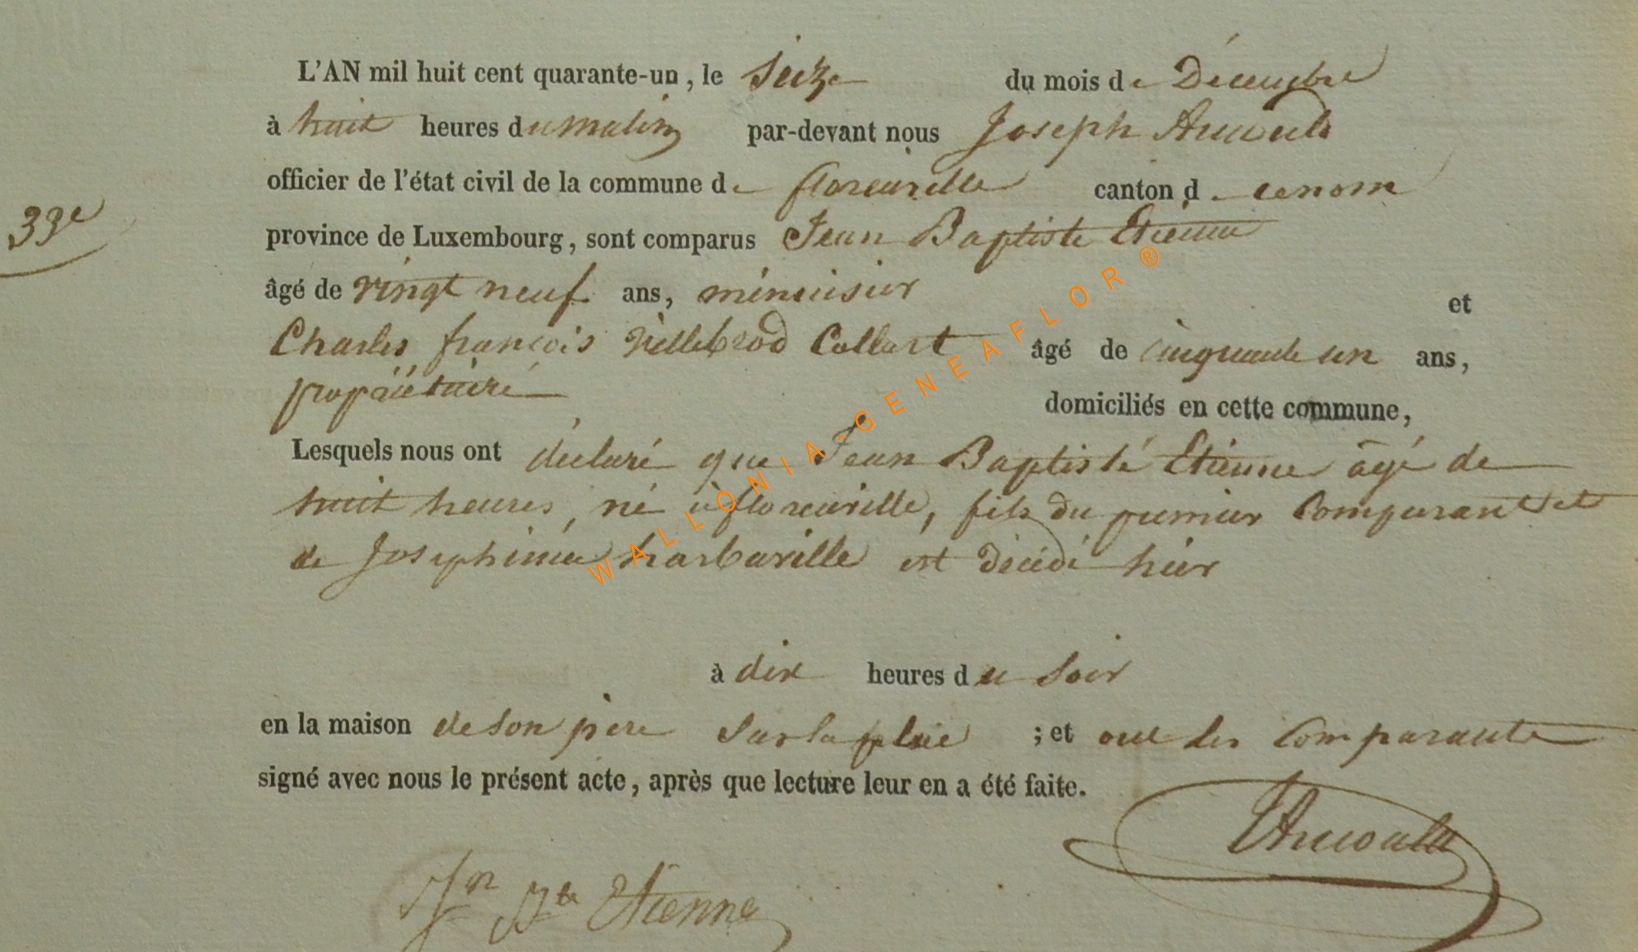 L'AN mil huit cent quarante-un, le Seize du mois de Décembre
à huit heures du matin par-devant nous Joseph Arnould
officier de l'état civil de la commune de florenville canton d
province de Luxembourg, sont comparus Jean Baptiste Etienne
33e
âgé de vingt neuf ans, ménuisier et
Charles françois Villebrod Collart âgé de cinquante un ans,
propriétaire domiciliés en cette commune,
Lesquels nous ont déclaré que Jean Baptiste Etienne âgé de
huit heures, né à florenville, fils du premier Comparant et
de Josephine harbaville est décédé hier
à dix heures du Soir
en la maison de son père Sur la place ; et ont les Comparants
signé avec nous le présent acte, après que lecture leur en a été faite.
JArnould
Jn Bte Etienne
WALLONIA-GENEAFLOR®